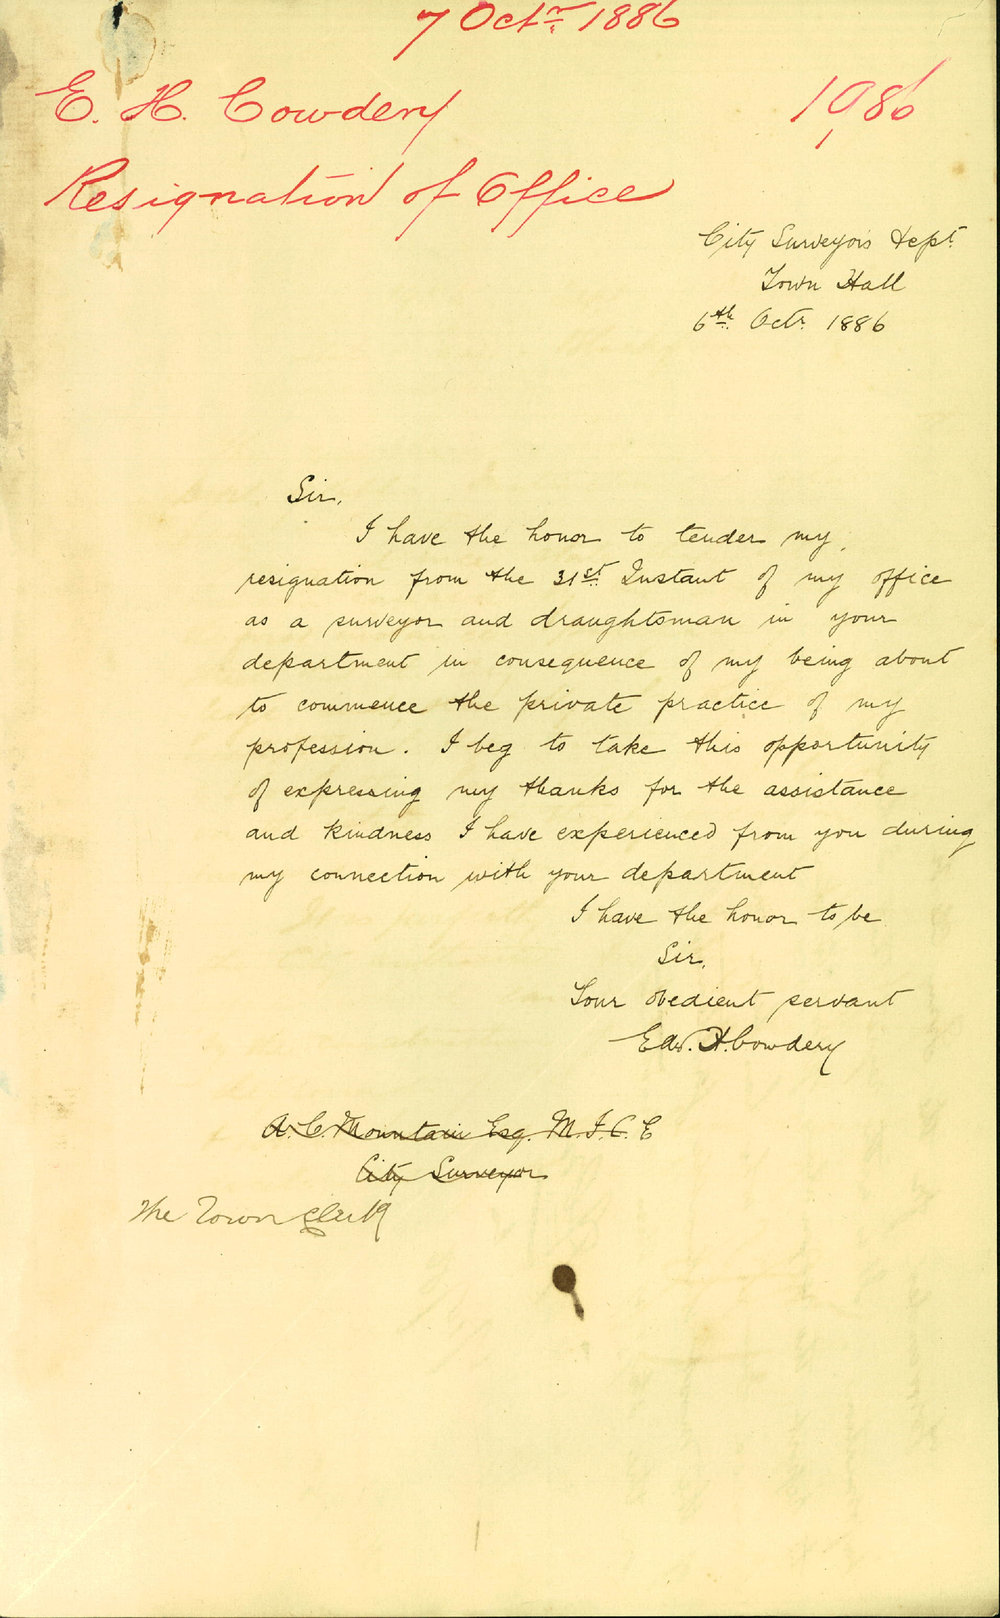 7 Octr. 1886
E. H. Cowdery
1986
Resignation of Office
City Surveyors Dept.
Town Hall
6th. Octr. 1886
Sir,
I have the honor to tender my
resignation from the 31st. Instant of my office
as a surveyor and draughtsman in your
department in consequence of my being about
to commence the private practice of my
profession. I beg to take this opportunity
of expressing my thanks for the assistance
and kindness I have experienced from you during
my connection with your department
I have the honor to be
Sir,
Your obedient servant
Edw. H. Cowdery
A. C. Mountain Esq. M. I. C. E
City Surveyor
The Town Clerk